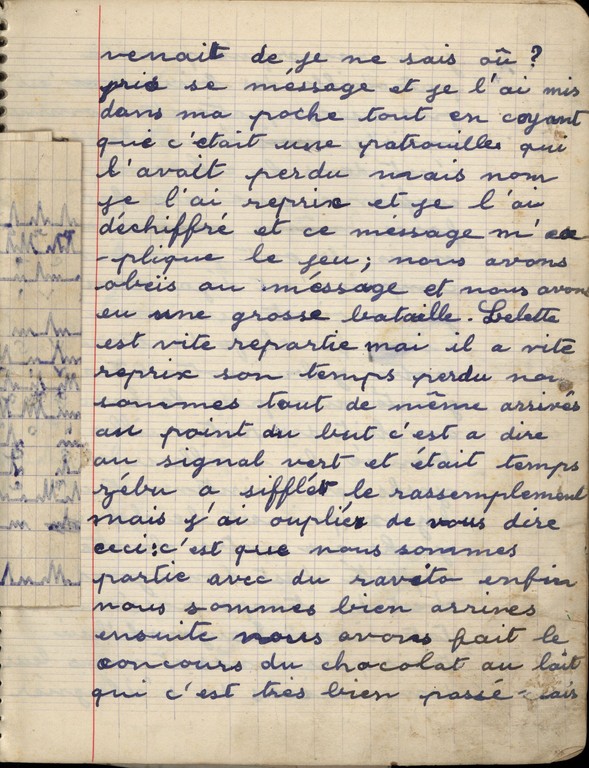 venait de je ne sais où ?
pris se méssage et je l'ai mis
dans ma poche tout en coyant
que c'etait une patrouilles qui
l'avait perdu mais nom
je l'ai reprix et je l'ai
déchiffré et ce méssage m'ex
-plique le jeu; nous avons
obéis au méssage et nous avons
eu une grosse bataille. Belette
est vite repartie mai il a vite
reprix son temps perdu nou
sommes tout de même arrivés
au point du but c'est a dire
au signal vert et était temps
zébu a sifflét le rassemplement
mais j'ai oupliér de vous dire
ceci: c'est que nous sommes
partie avec du ravéto enfin
nous sommes bien arrives
ensuite nous avons fait le
concours du chocolat au lait
qui c'est très bien passé